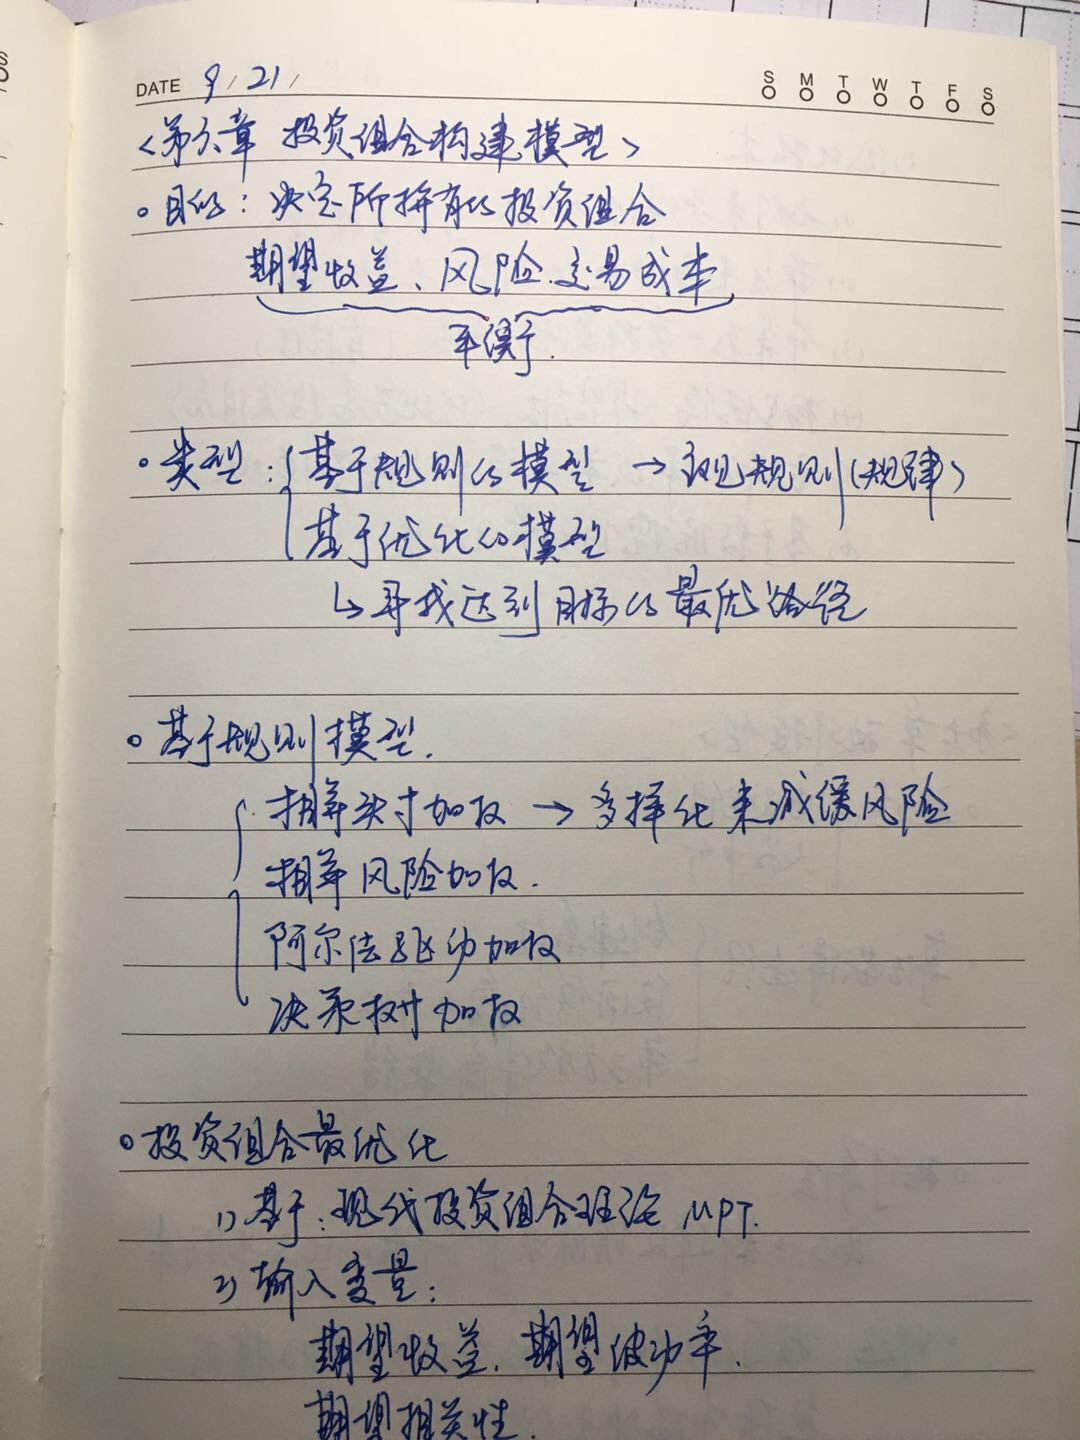 DATE 9/21/
S M T W T F S
<第六章 投资组合构建模型>
。目的：决定所拥有的投资组合
期望收益、风险、交易成本
平衡于.
·类型：{基于规则的模型 → 规则(规律)
基于优化的模型
↳寻找达到目标的最优路径
。基于规则模型.
相等头寸加权 → 多样化来减缓风险
相等风险加权.
阿尔法驱动加权
决策树加权
。投资组合最优化
1) 基于：现代投资组合理论 MPT.
2) 输入变量：
期望收益、期望波动率、
期望相关性.